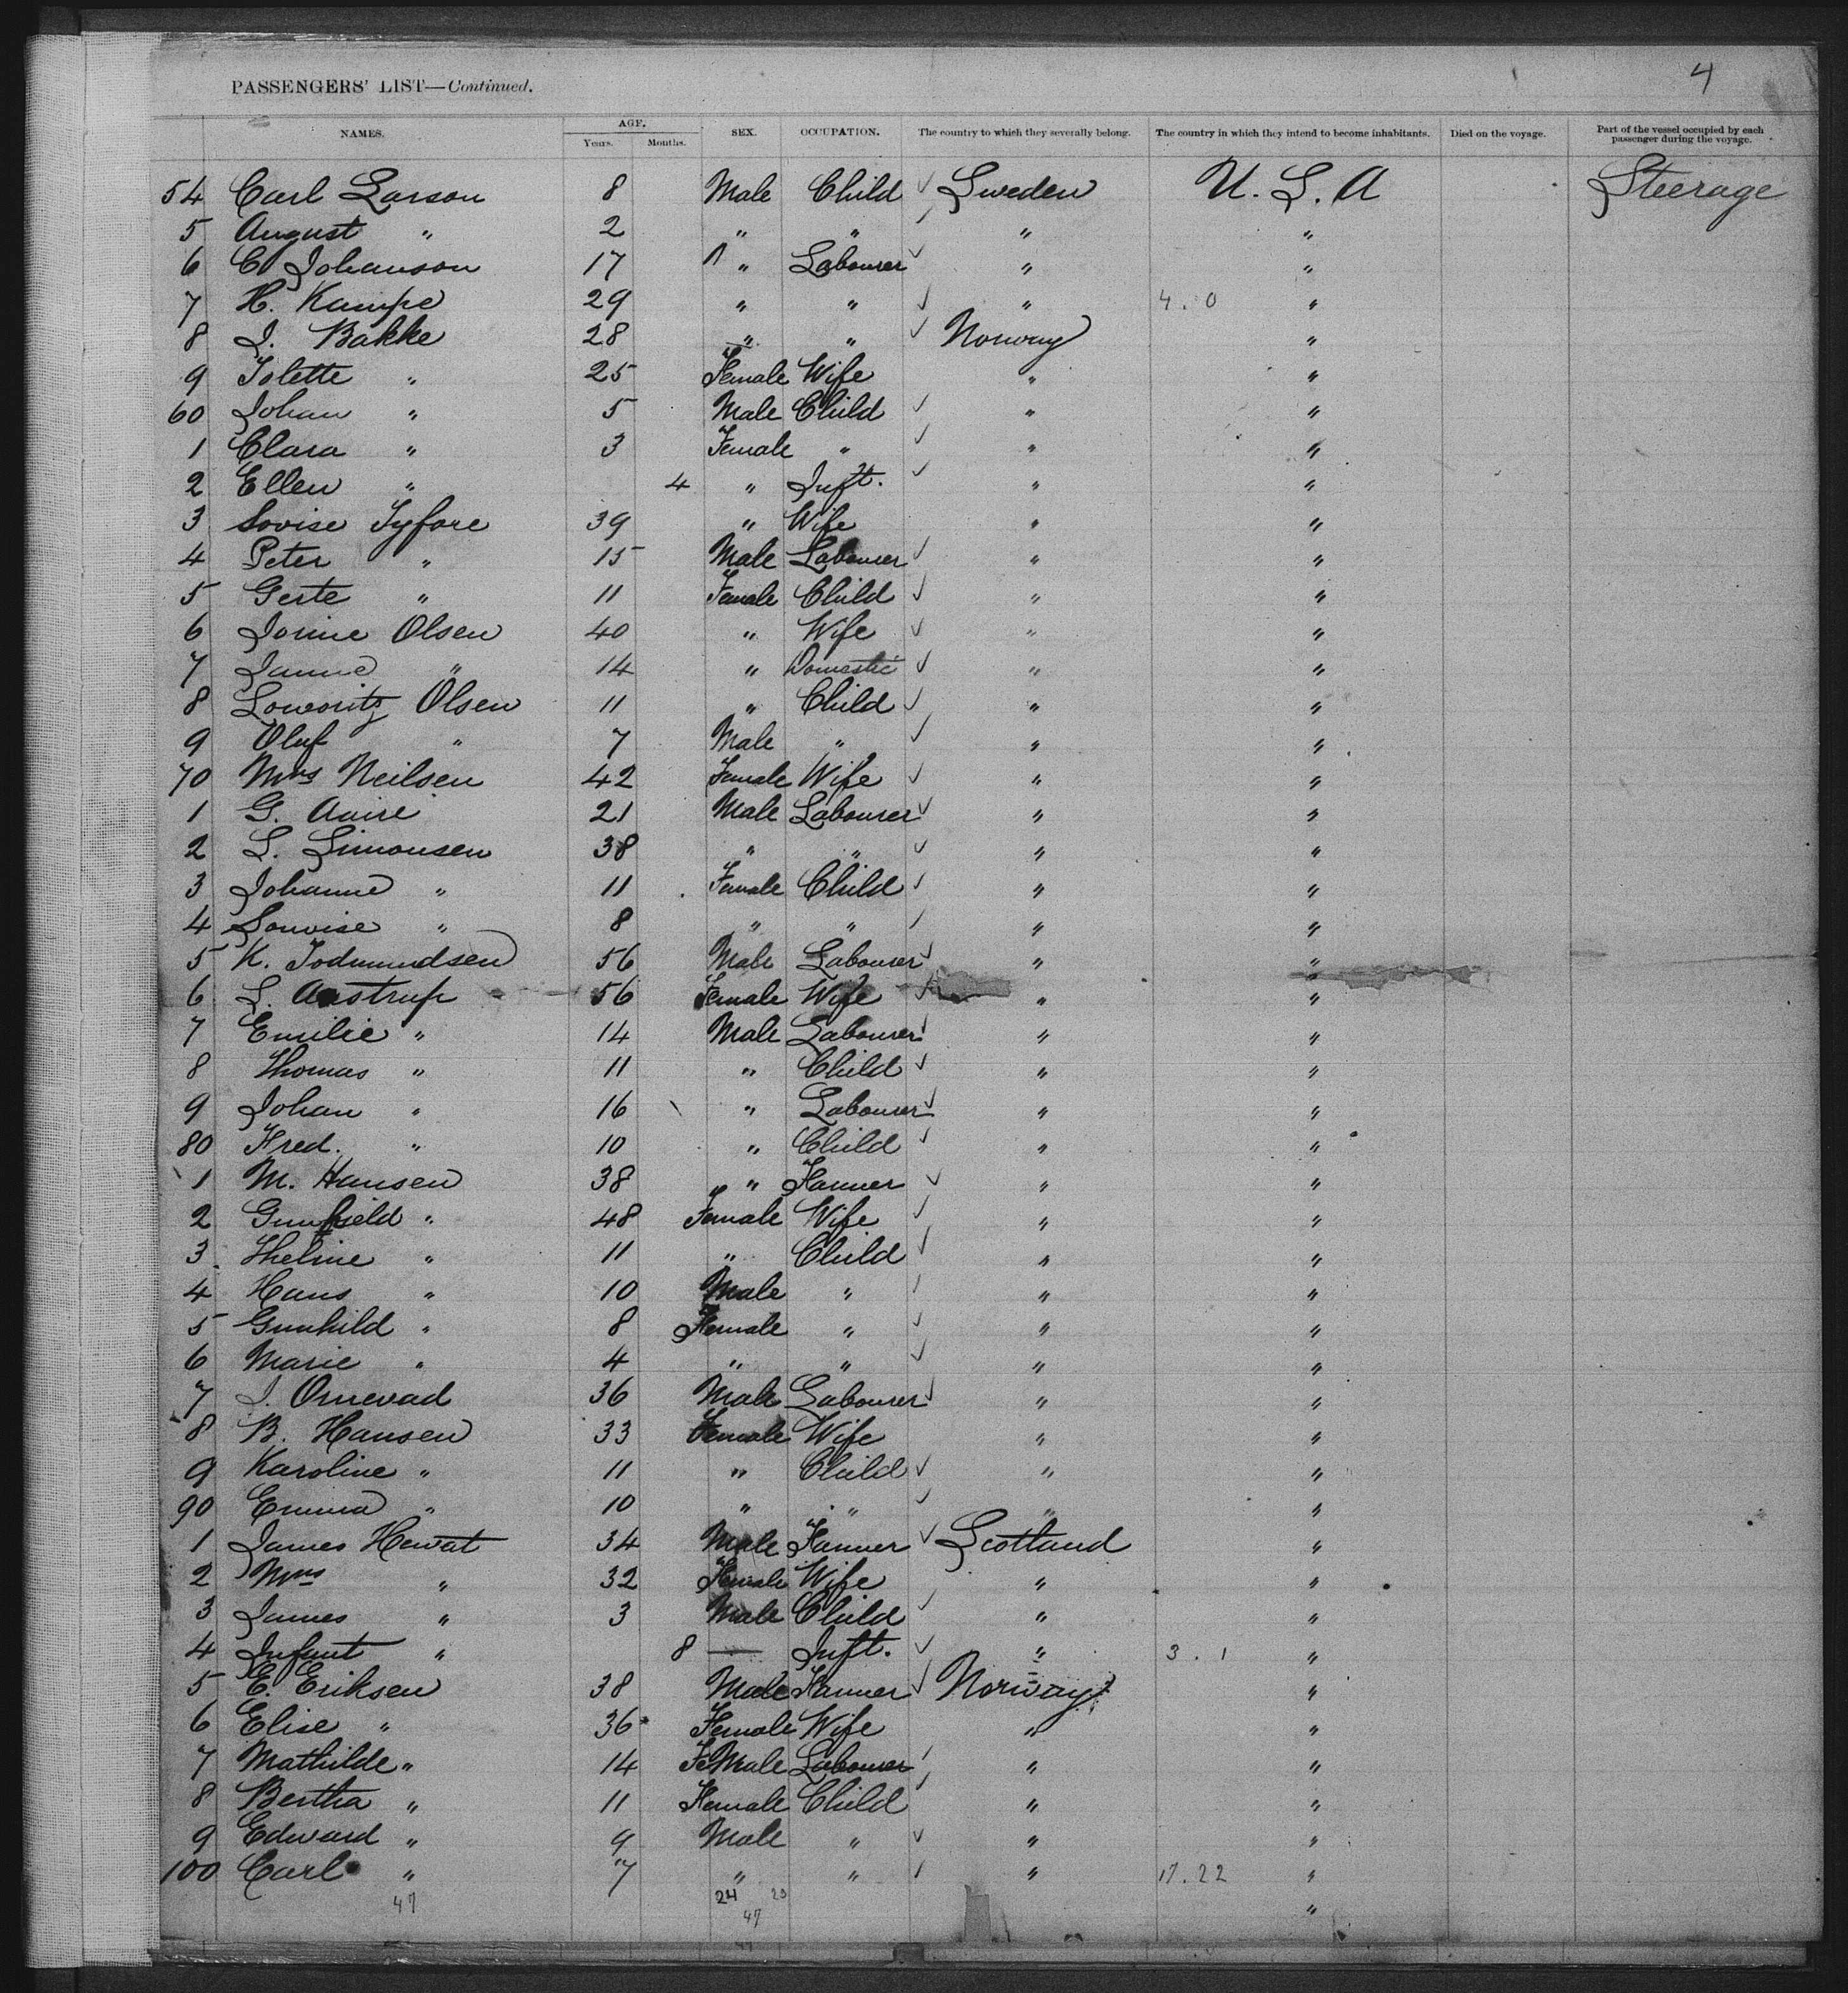 4
PASSENGERS' LIST—Continued.
NAMES. AGE. Years. Months. SEX. OCCUPATION. The country to which they severally belong. The country in which they intend to become inhabitants. Died on the voyage. Part of the vessel occupied by each passenger during the voyage.
54 Carl Larson 8 Male Child ✓ Sweden U.S.A Steerage
5 August " 2 " " ✓ " "
6 C Johanson 17 " Labourer ✓ " "
7 H. Kampe 29 " " ✓ " 4.0 "
8 I. Bakke 28 " " ✓ Norway "
9 Tolette " 25 Female Wife " "
60 Johan " 5 Male Child ✓ " "
1 Clara " 3 Female " ✓ " "
2 Ellen " 4 " Inft. ✓ " "
3 Lovise Tyfore 39 " Wife " "
4 Peter " 15 Male Labourer ✓ " "
5 Gerte " 11 Female Child ✓ " "
6 Jorine Olsen 40 " Wife ✓ " "
7 Janne " 14 " Domestic ✓ " "
8 Loworitz Olsen 11 " Child ✓ " "
9 Oluf " 7 Male " ✓ " "
70 Mrs Neilsen 42 Female Wife ✓ " "
1 G. 21 Male Labourer ✓ " "
2 S. Simonsen 38 " " ✓ " "
3 Johanne " 11 Female Child ✓ " "
4 Louvise " 8 " " ✓ " "
5 K. Todmundsen 56 Male Labourer ✓ " "
6 L. Aastrup 56 Female Wife ✓ " "
7 Emilie " 14 Male Labourer ✓ " "
8 Thomas " 11 " Child ✓ " "
9 Johan " 16 " Labourer ✓ " "
80 Fred. " 10 " Child ✓ " "
1 M. Hansen 38 " Farmer ✓ " "
2 Gunhield " 48 Female Wife ✓ " "
3 Theline " 11 " Child ✓ " "
4 Hans " 10 Male " ✓ " "
5 Gunhild " 8 Female " ✓ " "
6 Marie " 4 " " ✓ " "
7 I. Ornevad 36 Male Labourer ✓ " "
8 B. Hansen 33 Female Wife " "
9 Karoline " 11 " Child ✓ " "
90 Emma " 10 " " ✓ " "
1 James Hewat 34 Male Farmer ✓ Scotland "
2 Mrs " 32 Female Wife " "
3 James " 3 Male Child ✓ " "
4 Infant " 8 — Inft. ✓ " 3.1 "
5 E. Eriksen 38 Male Farmer ✓ Norway "
6 Elise " 36 Female Wife " "
7 Mathilde " 14 FeMale Labourer ✓ " "
8 Bertha " 11 Female Child ✓ " "
9 Edward " 9 Male " ✓ " "
100 Carl " 7 " " ✓ " 17.22 "
47 24 23 "
47